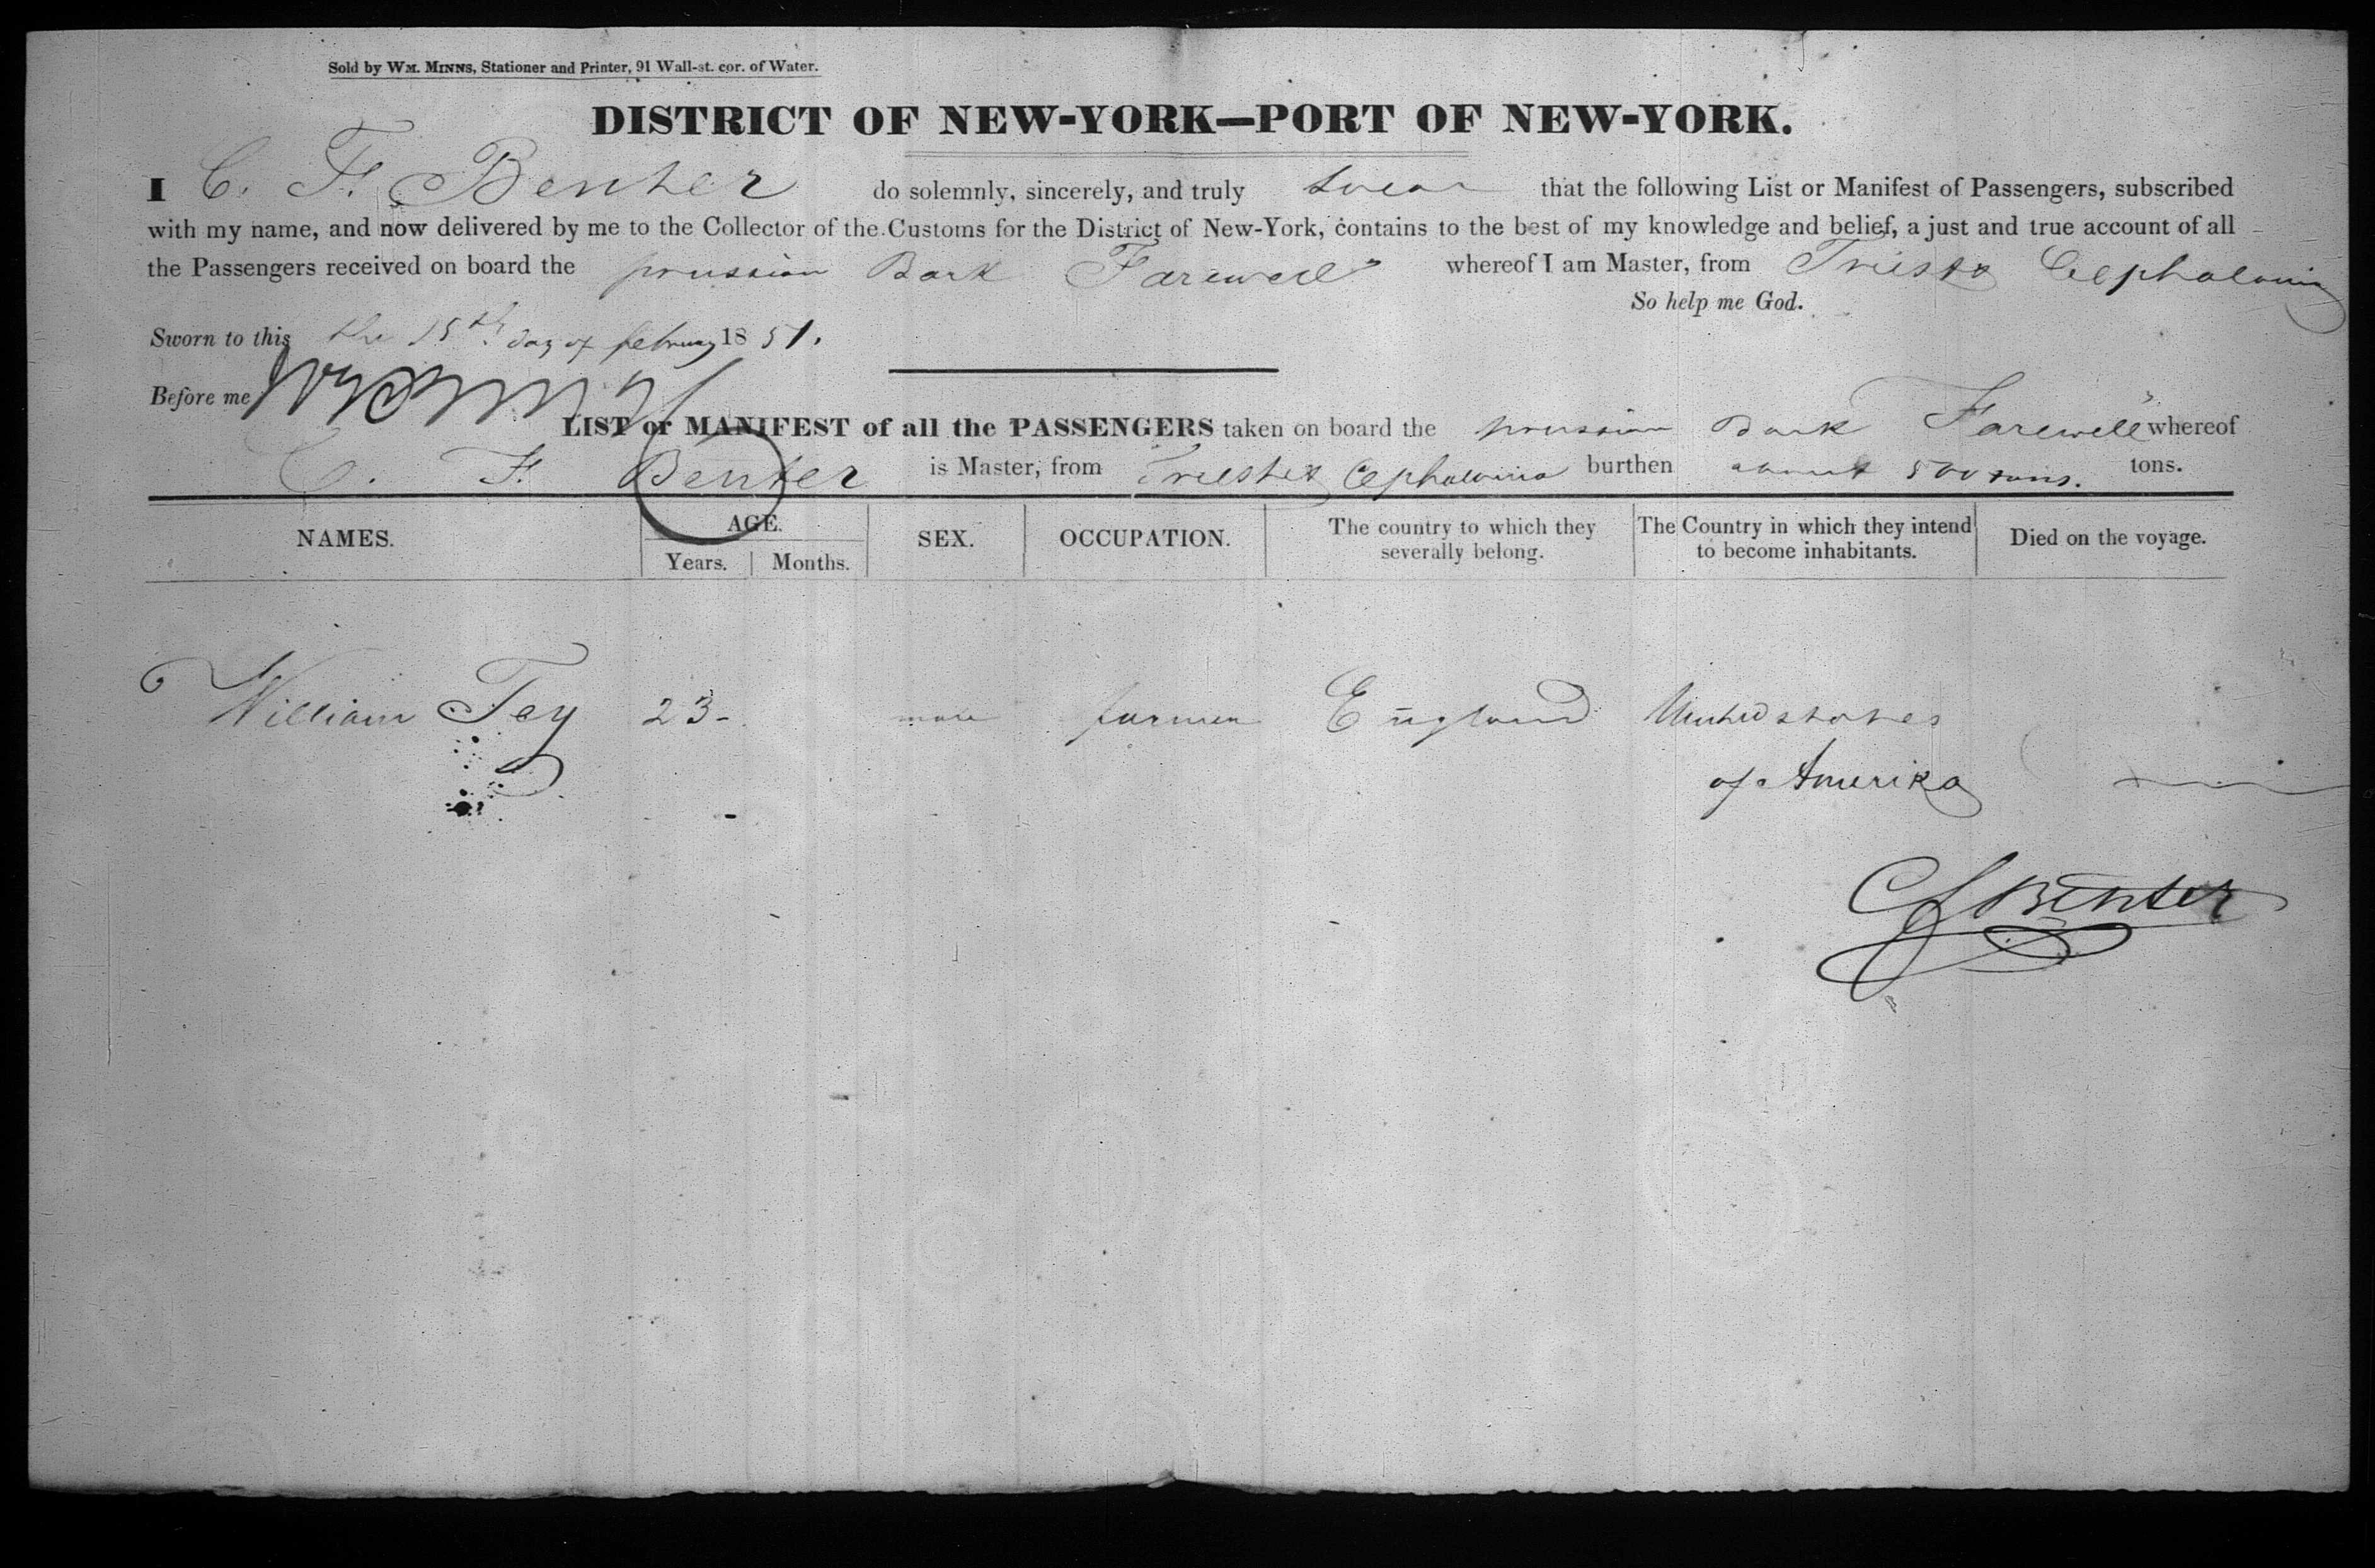 Sold by WM. MINNS, Stationer and Printer, 91 Wall-st. cor. of Water.
DISTRICT OF NEW-YORK—PORT OF NEW-YORK.
I C. F. Benter do solemnly, sincerely, and truly swear that the following List or Manifest of Passengers, subscribed
with my name, and now delivered by me to the Collector of the Customs for the District of New-York, contains to the best of my knowledge and belief, a just and true account of all
the Passengers received on board the prussian Bark Farewell whereof I am Master, from Cephalonia
So help me God.
Sworn to this the 15th day of february 1851.
Before me
LIST or MANIFEST of all the PASSENGERS taken on board the prussian Bark Farewell whereof
C. F. Benter is Master, from Cephalonia burthen about 500 tons. tons.
NAMES. AGE. SEX. OCCUPATION. The country to which they severally belong. The Country in which they intend to become inhabitants. Died on the voyage.
Years. Months.
William Fey 23- male farmer England United states
of Amerika
CF Benter